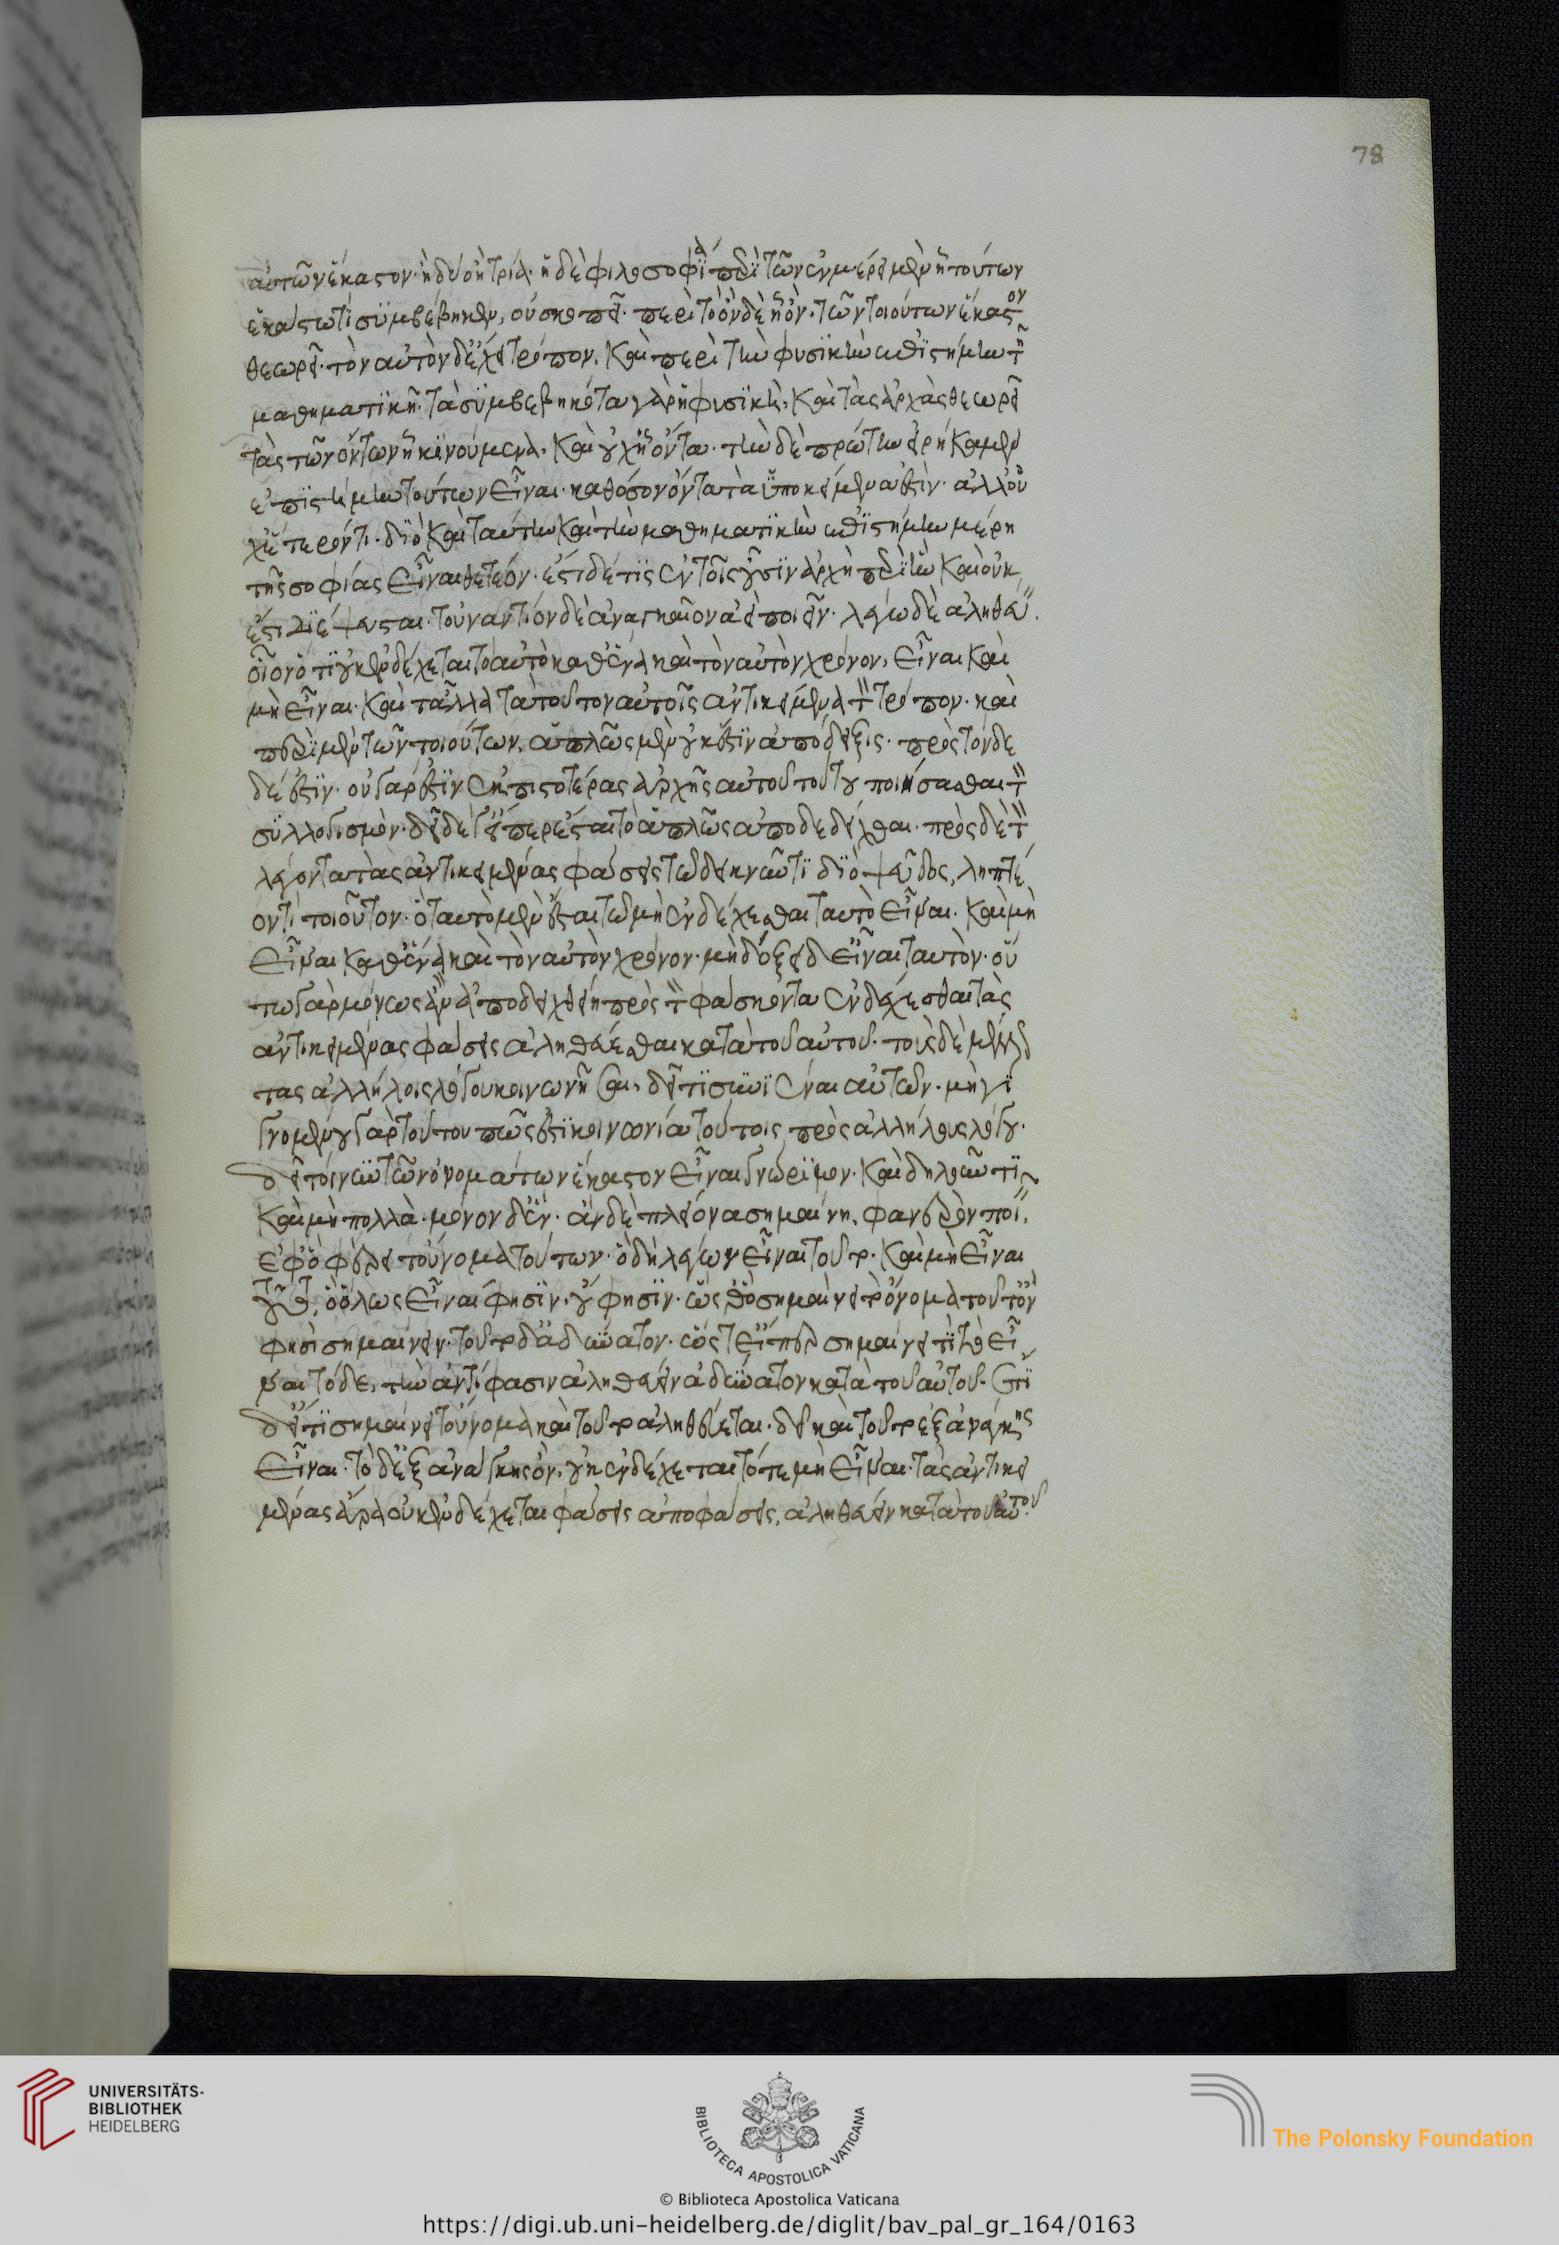 αὐτῶν ἕκαστον· ἢ δύο ἢ τρία· ἡ δὲ φιλοσοφία περὶ τῶν ἐν μέρει μὲν ᾗ τούτων
ἑκάστω τι συμβέβηκεν, οὐ σκοπεῖ· περὶ τὸ ὂν δὲ ᾗ ὂν· τῶν τοιούτων ἕκαστον
θεωρεῖ· τὸν αὐτὸν δ' ἔχει τρόπον, καὶ περὶ τὴν φυσικὴν ἐπιστήμην τῆ
μαθηματικῆ· τὰ συμβεβηκότα γὰρ ἡ φυσικὴ, καὶ τὰς ἀρχὰς θεωρεῖ
τὰς τῶν ὄντων ᾗ κινούμενα, καὶ οὐχ ᾗ ὄντα· τὴν δὲ πρώτην εἰρήκαμεν
ἐπιστήμην τούτων εἶναι· καθόσον ὄντα τὰ ὑποκείμενα ἐστὶν· ἀλλ' οὐ
χ' ᾗ ἕτερόν τι· διὸ καὶ ταύτην καὶ τὴν μαθηματικὴν ἐπιστήμην μέρη
τῆς σοφίας εἶναι θετέον· ἔστι δέ τις ἐν τοῖς οὖσιν ἀρχὴ περὶ ἣν καὶ οὐκ
ἔστι διέψευσται· τοὐναντίον δὲ ἀναγκαῖον ἀεὶ ποιεῖν· λέγω δὲ ἀληθεύειν·
οἷον ὅτι οὐκ ἐνδέχεται τὸ αὐτὸ καθ' ἕνα καὶ τὸν αὐτὸν χρόνον, εἶναι καὶ
μὴ εἶναι· καὶ τἆλλα τὰ τοῦτον αὐτοῖς ἀντικείμενα τὸν τρόπον· καὶ
περὶ μὲν τῶν τοιούτων, ἁπλῶς μὲν οὐκ ἔστιν ἀπόδειξις· πρὸς τόνδε
δέ ἐστιν· οὐ γάρ ἐστιν ἐκ πιστοτέρας ἀρχῆς αὐτοῦ τούτου ποιήσασθαι τὸν
συλλογισμὸν· δεῖ δέ γ' εἴπερ ἔσται τὸ ἁπλῶς ἀποδεδεῖχθαι· πρὸς δὲ τὸν
λέγοντα τὰς ἀντικειμένας φάσεις τῶ δεικνῦντι διὸ ψεῦδος, ληπτέ
ον τί τοιοῦτον· ὃ ταυτὸ μὲν ἔσται τῶ μὴ ἐνδέχεσθαι ταυτὸ εἶναι· καὶ μὴ
εἶναι καθ' ἕνα καὶ τὸν αὐτὸν χρόνον· μὴ δόξει δ' εἶναι ταυτὸν· οὕ
τω γὰρ μόνως ἂν ἀποδειχθείη πρὸς τὸν φάσκοντα ἐνδέχεσθαι τὰς
ἀντικειμένας φάσεις ἀληθεύεσθαι κατὰ τοῦ αὐτοῦ· τοὺς δὲ μέλλον
τας ἀλλήλοις λόγου κοινωνήσειν, δεῖ τι συνιέναι αὐτῶν· μὴ γι
γνομένου γὰρ τούτου πῶς ἔσται κοινωνία τούτοις πρὸς ἀλλήλους λόγου·
δεῖ τοίνυν τῶν ὀνομάτων ἕκαστον εἶναι γνώριμον· καὶ δηλοῦν τι
καὶ μὴ πολλὰ· μόνον δ' ἕν· ἂν δὲ πλείονα σημαίνη, φανερὸν ποιεῖν,
ἐφ' ὃ φέρει τοὔνομα τούτων· ὁ δὴ λέγων εἶναι τοῦτο· καὶ μὴ εἶναι
τοῦτο, ὃ ὅλως εἶναι φησὶν, οὔ φησὶν· ὥσθ' ὃ σημαίνει τὸ ὄνομα τοῦτ' ὂν
φησὶ σημαίνειν· τοῦτο δ' ἀδύνατον· ὥστ' εἴπερ σημαίνει τι τὸ εἶ
ναι τόδε, τὴν ἀντίφασιν ἀληθεύειν ἀδύνατον κατὰ τοῦ αὐτοῦ· ἔτι
δ' εἴ τι σημαίνει τοὔνομα καὶ τοῦτο ἀληθεύεται· δεῖ καὶ τοῦτο ἐξ ἀνάγκης
εἶναι· τὸ δ' ἐξ ἀνάγκης ὂν, οὐκ ἐνδέχεται τότε μὴ εἶναι· τὰς ἀντικει
μένας ἄρα οὐκ ἐνδέχεται φάσεις ἀποφάσεις, ἀληθεύειν κατὰ τοῦ αὐτοῦ.
78
UNIVERSITÄTS-
BIBLIOTHEK
HEIDELBERG
BIBLIOTECA APOSTOLICA VATICANA
The Polonsky Foundation
© Biblioteca Apostolica Vaticana
https://digi.ub.uni-heidelberg.de/diglit/bav_pal_gr_164/0163